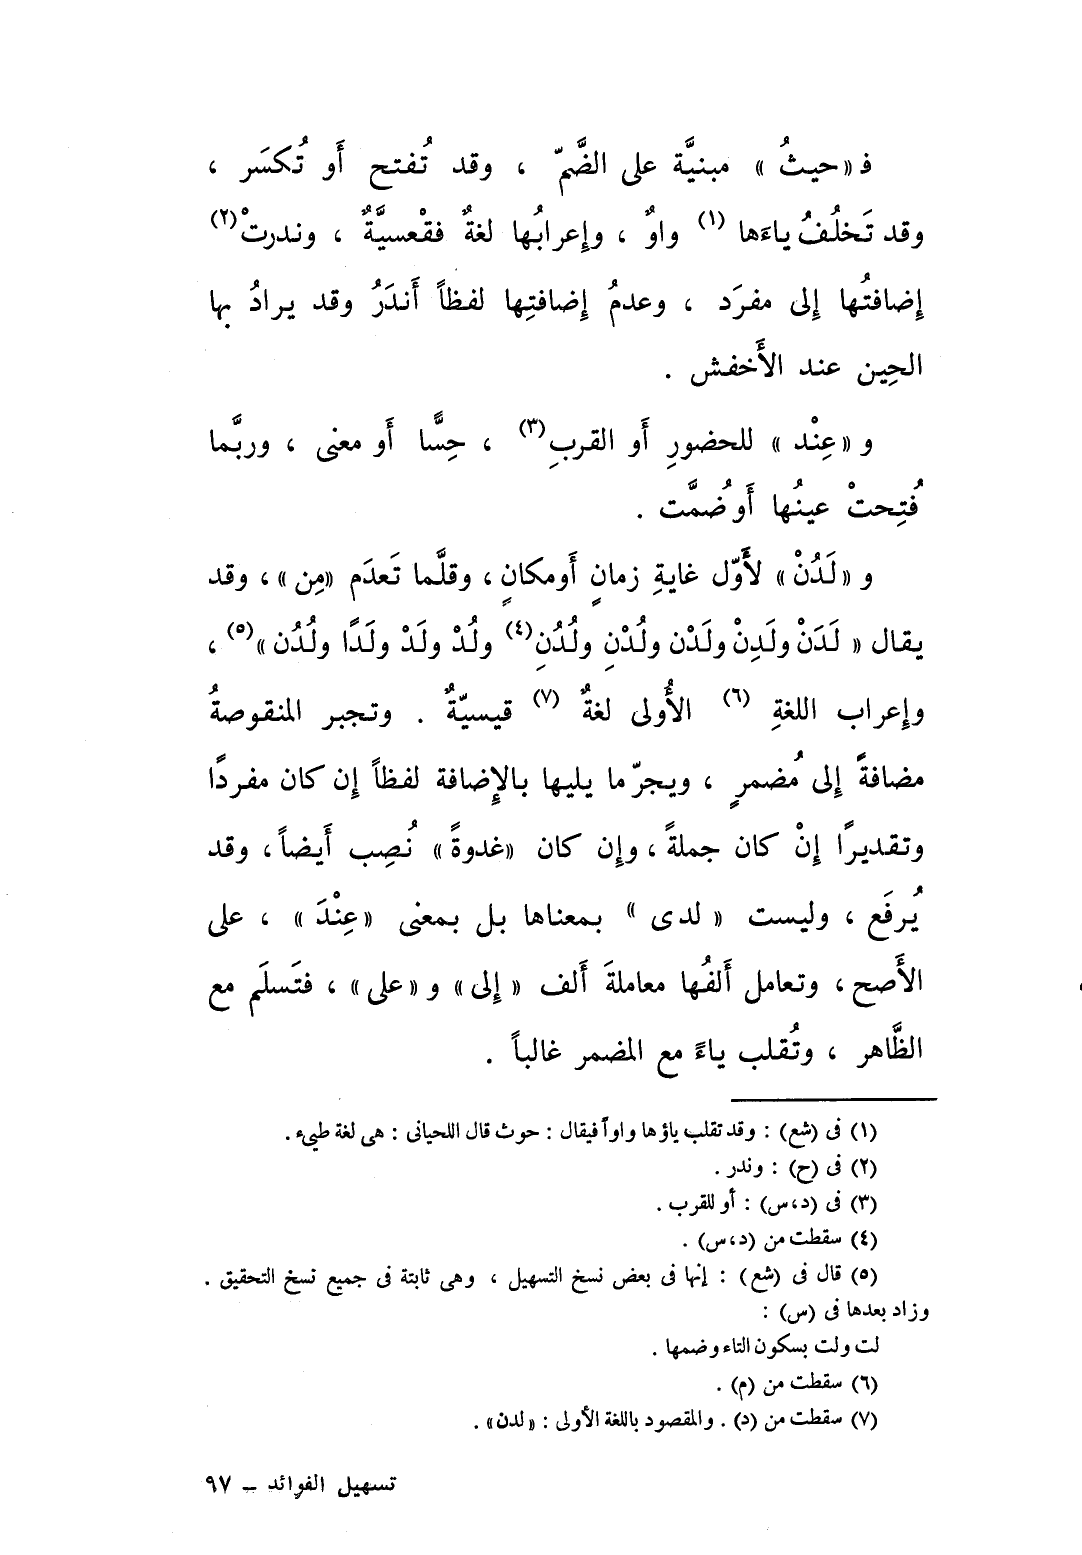 فـ «حيثُ» مبنيَّة على الضَّمّ ، وقد تُفتح أَو تُكسَر ،
وقد تَخلُفُ ياءَها (١) واوٌ ، وإعرابُها لغةٌ فقْعسيَّةٌ ، وندرتْ(٢)
إضافتُها إلى مفرَد ، وعدمُ إضافتِها لفظاً أَندَرُ وقد يرادُ بها
الحِين عند الأَخفش .
و «عِنْد» للحضورِ أَو القربِ(٣) ، حِسًّا أَو معنى ، وربَّما
فُتِحتْ عينُها أَو ضُمَّت .
و «لَدُنْ» لأَوّل غايةِ زمانٍ أَومكانٍ ، وقلَّما تَعدَم «مِن» ، وقد
يقال «لَدَنْ ولَدِنْ ولَدْن ولُدْنِ ولُدُنِ(٤) ولُدْ ولَدْ ولَدًا ولُدُن»(٥) ،
وإعراب اللغةِ (٦) الأُولى لغةٌ (٧) قيسيّةٌ . وتجبر المنقوصةُ
مضافةً إلى مُضمرٍ ، ويجرّ ما يليها بالإِضافة لفظاً إن كان مفردًا
وتقديرًا إنْ كان جملةً ، وإن كان «غدوةً» نُصِب أَيضاً ، وقد
يُرفَع ، وليست «لدى» بمعناها بل بمعنى «عِنْدَ» ، على
الأَصح ، وتعامل أَلفُها معاملةَ أَلف «إلى» و «على» ، فتَسلَم مع
الظَّاهر ، وتُقلب ياءً مع المضمر غالباً .
(١) فى (شع) : وقد تقلب ياؤها واواً فيقال : حوث قال اللحيانى : هى لغة طيىء .
(٢) فى (ح) : وندر .
(٣) فى (د،س) : أو للقرب .
(٤) سقطت من (د،س) .
(٥) قال فى (شع) : إنها فى بعض نسخ التسهيل ، وهى ثابتة فى جميع نسخ التحقيق .
وزاد بعدها فى (س) :
لت ولت بسكون التاء وضمها .
(٦) سقطت من (م) .
(٧) سقطت من (د) . والمقصود باللغة الأولى : «لدن» .
تسهيل الفوائد – ٩٧